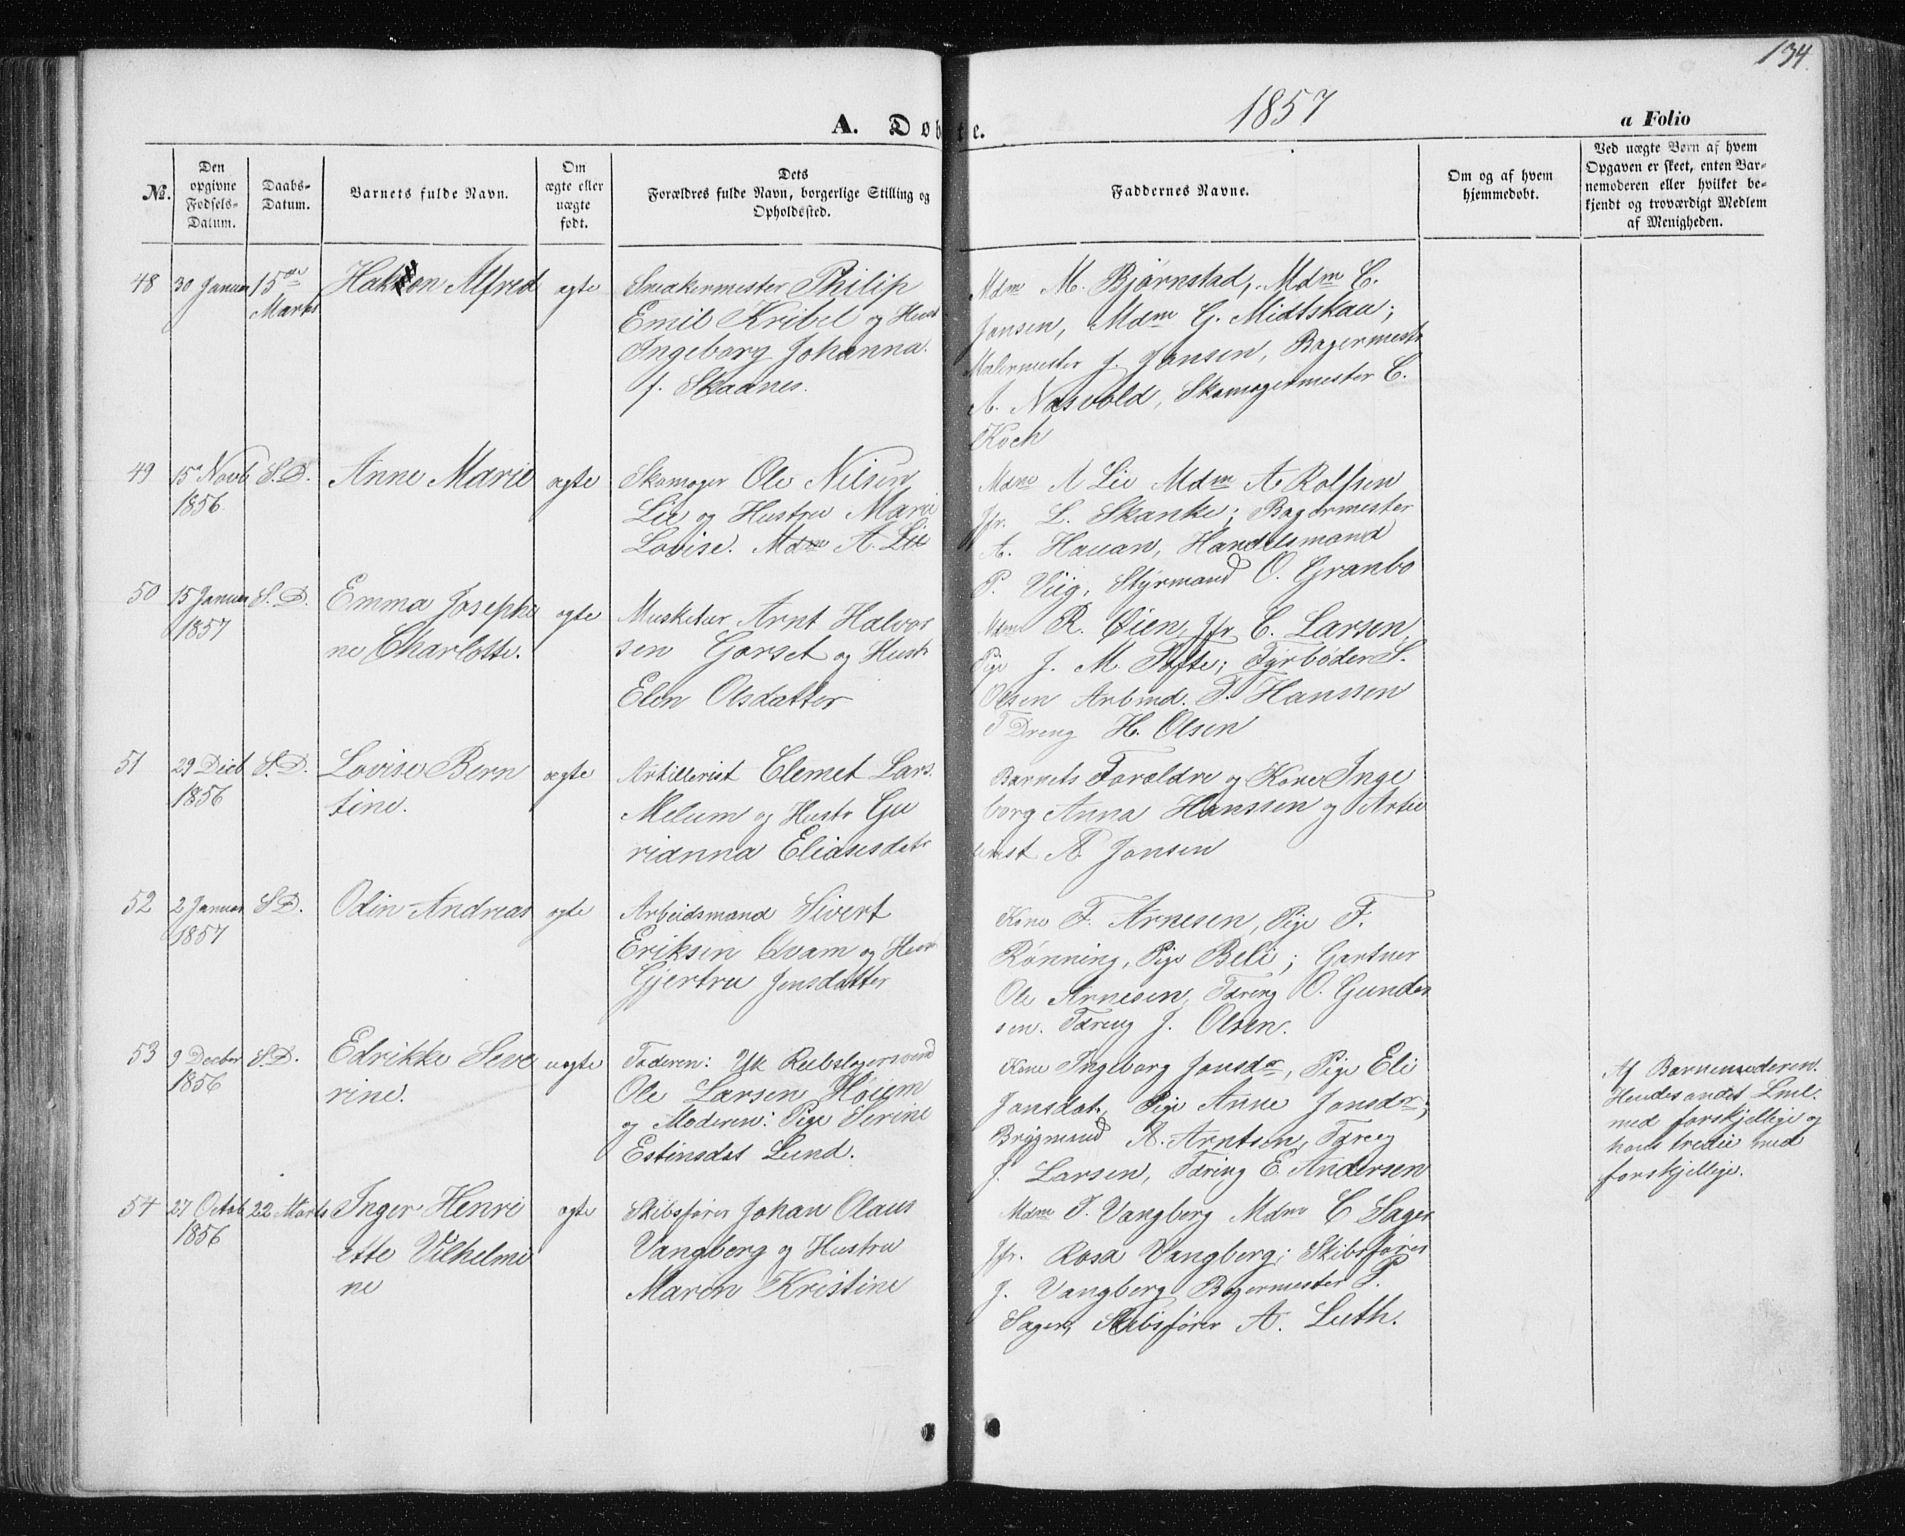 134.
1857
A. Døbte.
a Folio
№.
Den opgivne Fødsels-Datum.
Daabs-Datum.
Barnets fulde Navn.
Om ægte eller uægte født.
Dets Forældres fulde Navn, borgerlige Stilling og Opholdssted.
Faddernes Navne.
Om og af hvem hjemmedøbt.
Ved uægte Børn af hvem Opgaven er skeet, enten Barnemoderen eller hvilket bekjendt og troværdigt Medlem af Menigheden.
48
30 Januar
15de Marts
Hakon Alfred
ægte
Snekermester Philip
Emil Kribel og Hust
Ingeborg Johanna
f. Skaanes.
Mdm M. Bjørnstad, Mdm C.
Jansen, Mdm G. Midtskau;
Malermester J. Jansen, Bagermestr
A. Næsvold, Skomagermester C.
Koch
49
15de Novb 1856.
S.D.
Anne Marie
ægte
Skomager Ole Nilsen
Lie og Hustru Marie
Lovise. Mdm A. Lie
Mdm A Lie Mdm A Rolfsen
Jfr. L. Skanke; Bagermester
A. Hauan, Handelsmand
P. Viig, Styrmand O. Granbo
50
15 Januar 1857
S.D.
Emma Josephi
ne Charlotte.
ægte
Musketer Arnt Halvor
sen Gorset og Hustr
Elen Olsdatter
Mdm R. Øien, Jfr C. Larsen,
Pige J. M. Tofte; Fyrbøder S.
Olsen Arbmd. T. Hanssen
T Dreng H. Olsen
51
29 Decb 1856
S.D.
Lovise Bern
tine.
ægte
Artillerist Clemet Lars
Melum og Hustr Gu
rianna Eliasesdatr
Barnets Forældre og Kone Inge
borg Anna Hanssen og Artil
lerist A. Jansen
52
2 Januar 1857
S.D.
Odin Andreas
ægte
Arbeidsmand Sivert
Eriksen Qvam og Hust
Gjertru Jensdatter
Kone F. Arnesen, Pige F.
Rønning, Pige Beli; Gartner
Ole Arnesen, Tdreng O. Gunder
sen. Tdreng J. Olsen.
53
9 Decbr 1856
S.D.
Edrikke Seve
rine.
uægte
Faderen: Uk Rebslagersvend
Ole Larsen Høiem
og Moderen: Pige Serine
Estinsdat Lund.
Kone Ingeborg Jonsdr, Pige Eli
Jonsdat, Pige Anne Jonsdr;
Brygmand A. Arntsen, Tdreng
J. Larsen, Tdreng E. Andersen
Af Barnemoderen.
Hendes andet Leml.
med forskjellige og
hans tredie med
forskjellige.
54
27 Octob 1856
22 Marts
Inger Henri
ette Vilhelmi
ne
ægte
Skibsfører Johan Olaus
Vangberg og Hustru
Maren Kristine
Mdm J. Vangberg Mdm C Sager
Jfr. Rosa Vangberg; Skibsfører
J. Vangberg Bagermester P.
Sager, Skibsfører A. Luth.